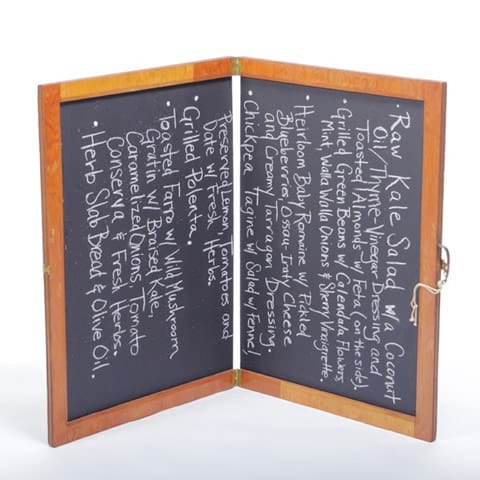 • Raw Kale Salad w/a Coconut
Oil/Thyme-Vinegar Dressing and
Toasted Almonds w/ Feta (on the side).
• Grilled Green Beans w/ Calendula Flowers,
Mint, Walla Walla Onions & Sherry Vinaigrette.
Heirloom Baby Romaine w/ Pickled
Blueberries, Ossau-Iraty Cheese
and Creamy Tarragon Dressing.
• Chickpea Tagine w/ Salad w/ Fennel,
Preserved Lemon, Tomatoes and
Date w/ Fresh Herbs.
• Grilled Polenta.
• Toasted Farro w/ Wild Mushroom
Gratin w/ Braised Kale,
Caramelized Onions, Tomato
Conserva & Fresh Herbs.
• Herb Slab Bread & Olive Oil.